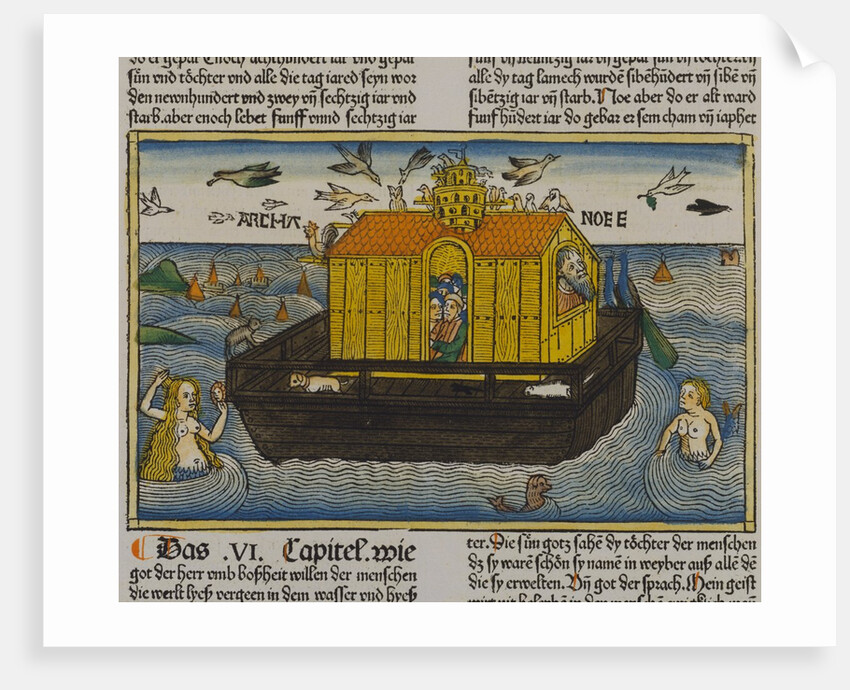 do er gepar Enoch achthundert iar vnd gepar
sün vnd töchter vnd alle die tag iared seyn wor
den newnhundert vnd zwey vñ sechtzig iar vnd
starb. aber enoch lebet funff vnnd sechtzig iar
sun vñ neuntzig iar vñ gepar sun vñ töchter.
alle dy tag lamech wurdē sibēhūdert vñ sibē vñ
sibētzig iar vñ starb. Noe aber do er alt ward
funf hūdert iar do gebar er sem cham vñ iaphet
ARCHA NOEE
Das .VI. Capitel. wie
got der herr vmb boßheit willen der menschen
die werlt lyeß vergeen in dem wasser vnd hyeß
ter. Die sün gotz sahē dy töchter der menschen
dz sy warē schön sy namē in weyber auß allē dē
die sy erwelten. Vñ got der sprach. Mein geist